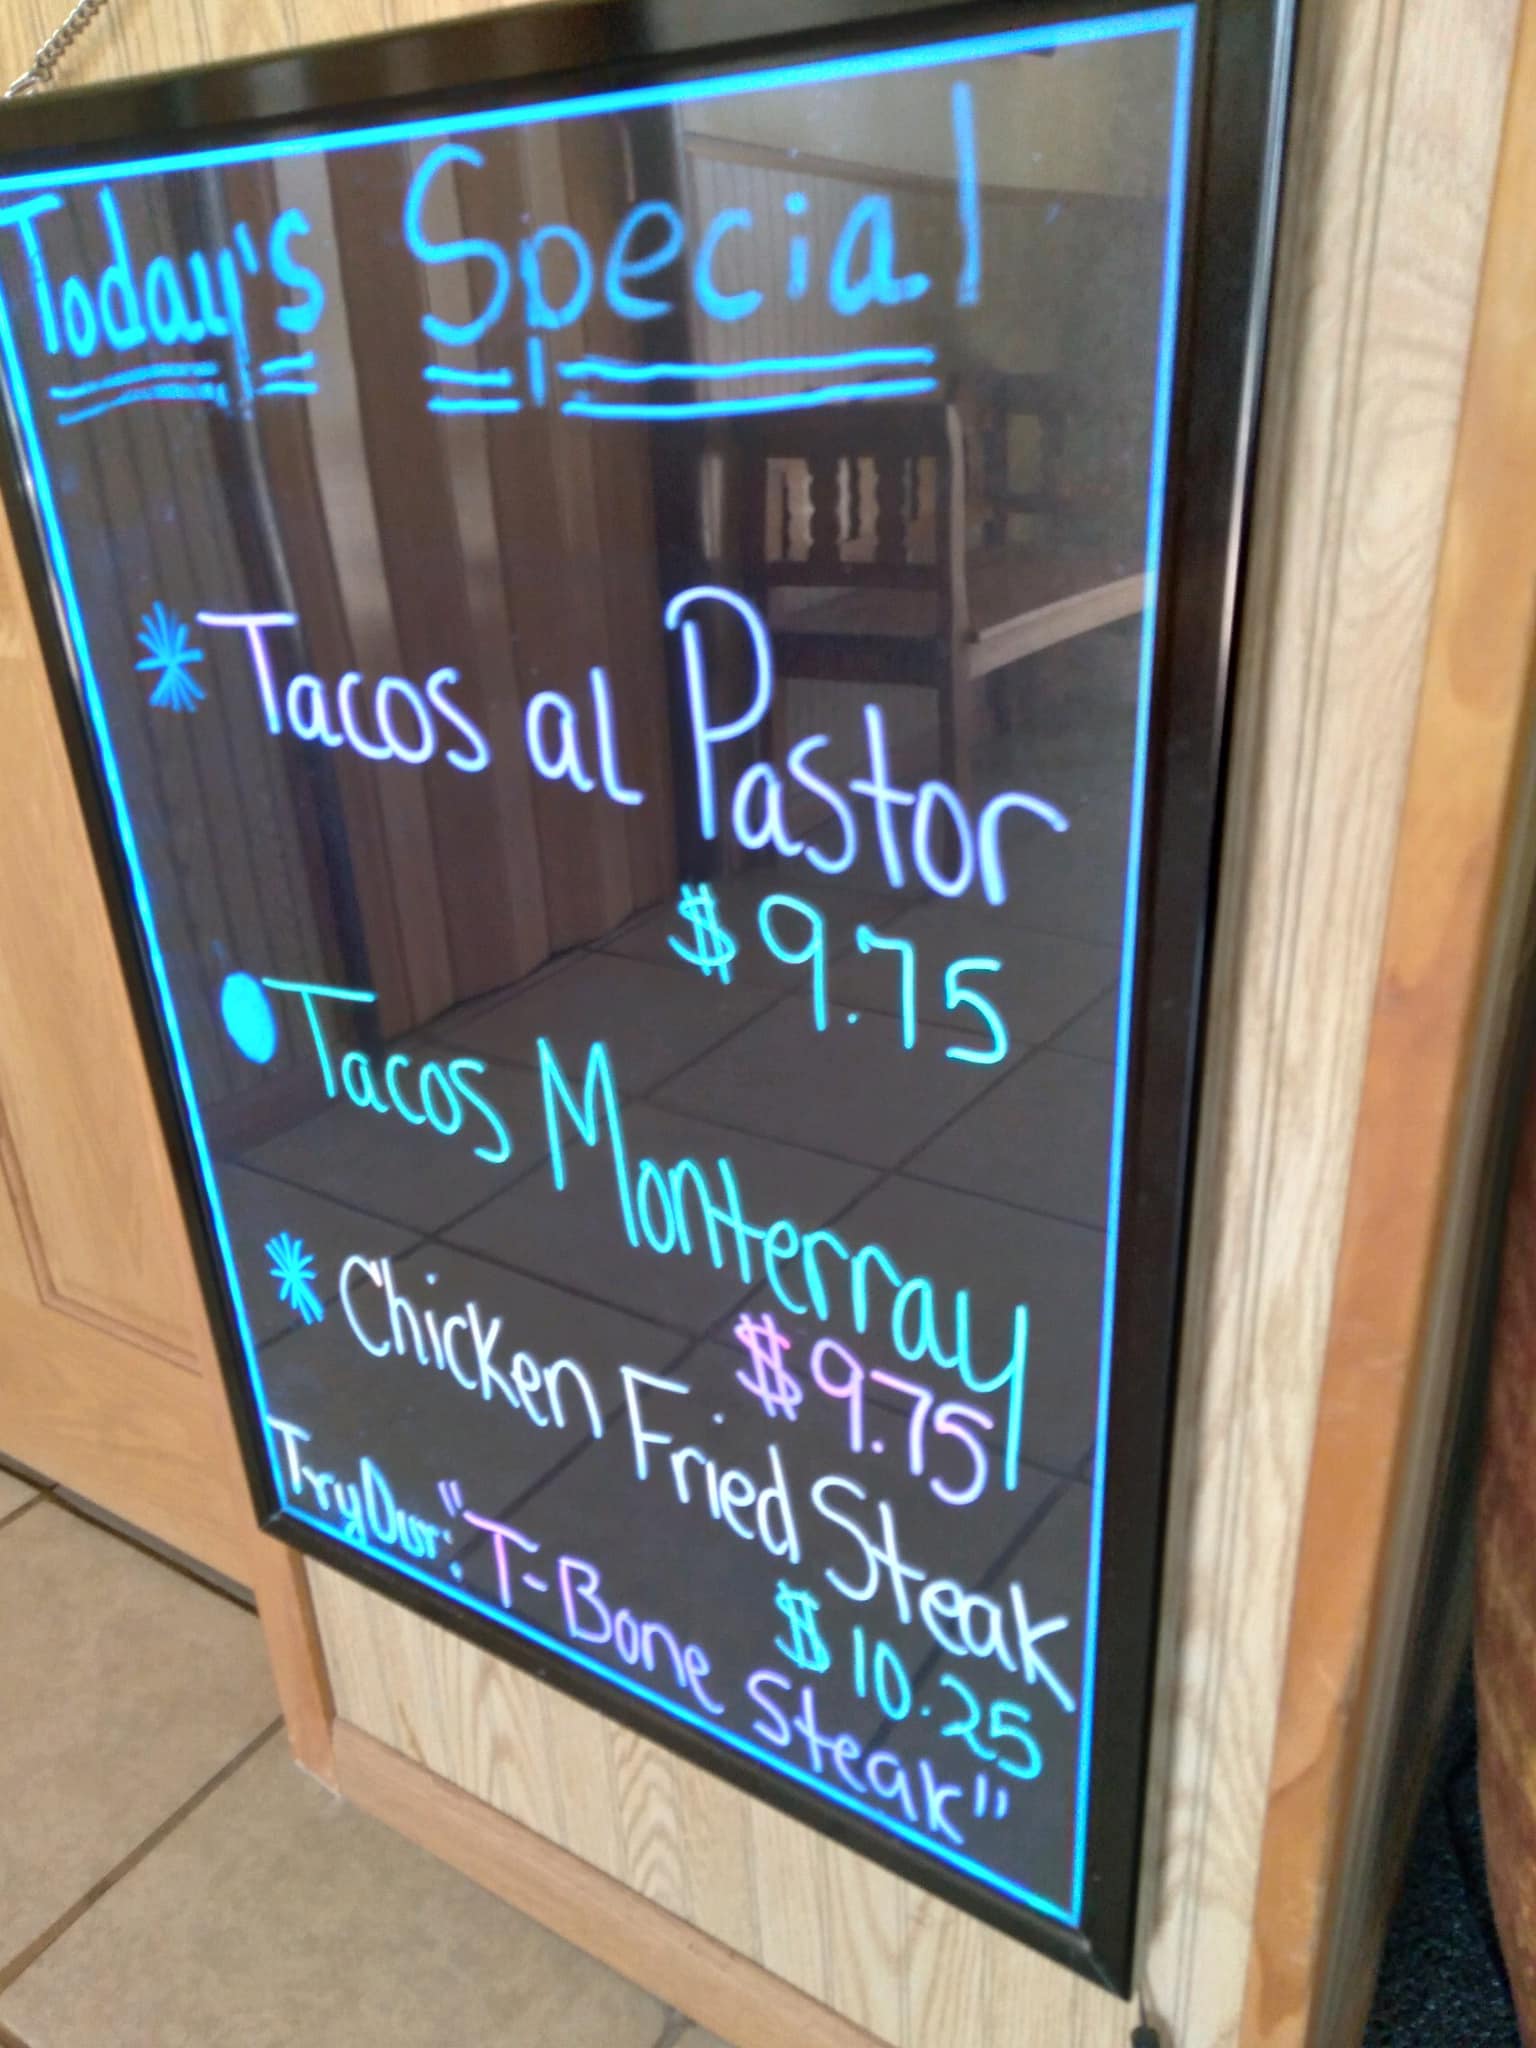 Today's Special
* Tacos al Pastor
$9.75
• Tacos Monterray
$9.75
* Chicken Fried Steak
$10.25
Try Our: "T-Bone Steak"